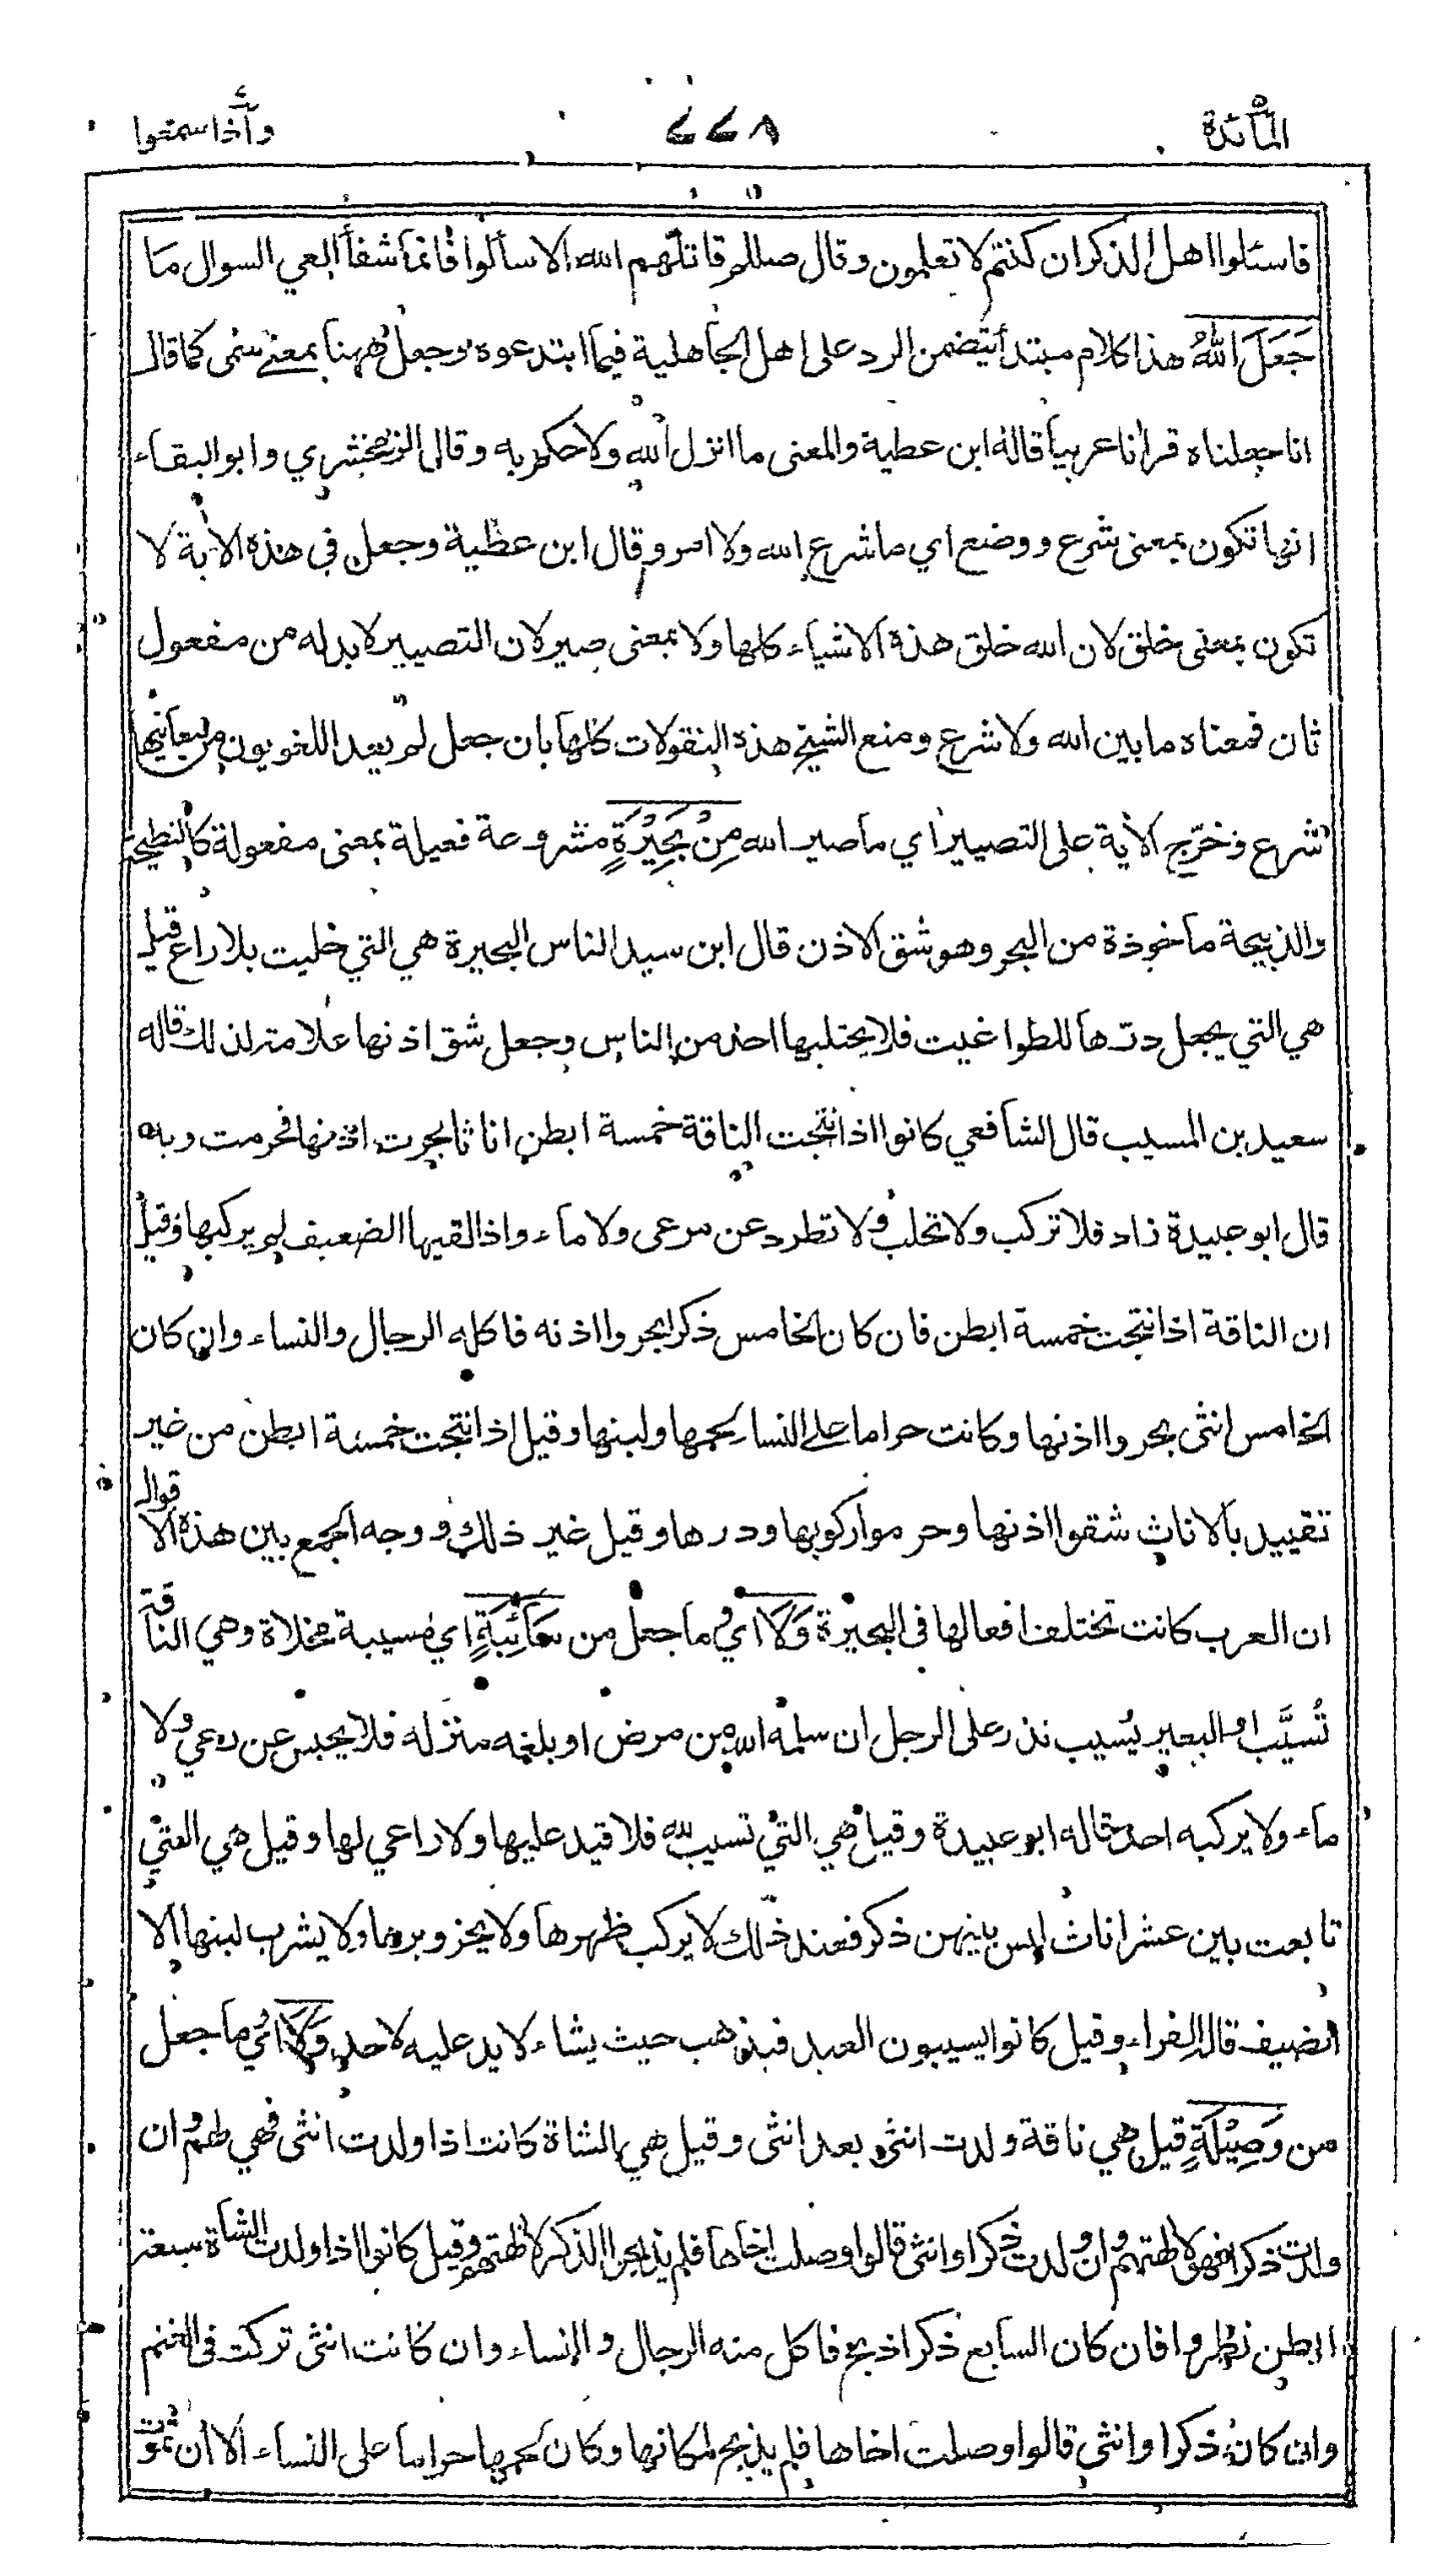 المائدة ٤٤٨ واذا سمعوا
فاسئلوا اهل الذكر ان كنتم لا تعلمون وقال صللم قاتلهم الله الا سألوا فانما شفأ العي السوال مَا
جَعَلَ اللهُ هذا كلام مبتدأ يتضمن الرد على اهل الجاهلية فيما ابتدعوه وجعل ههنا بمعنى سمى كما قال
انا جعلناه قرانا عربيا قاله ابن عطية والمعنى ما انزل الله ولا حكم به وقال الزمخشري وابو البقاء
انها تكون بمعنى شرع ووضع اي ما شرع الله ولا امر وقال ابن عطية وجعل في هذه الاية لا
تكون بمعنى خلق لان الله خلق هذه الاشياء كلها ولا بمعنى صير لان التصيير لا بد له من مفعول
ثان فمعناه ما بين الله ولا شرع ومنع الشيخ هذه النقولات كلها بان جعل لم يعد اللغويون من معانيها
شرع وخرّج الاية على التصيير اي ما صير الله مِنْ بَحِيْرَةٍ مشروعة فعيلة بمعنى مفعولة كالنطيحة
والذبيحة ماخوذة من البحر وهو شق الاذن قال ابن سيد الناس البحيرة هي التي خليت بلا راع قيل
هي التي يجعل درّها للطواغيت فلا يحتلبها احد من الناس وجعل شق اذنها علامة لذلك قاله
سعيد بن المسيب قال الشافعي كانوا اذا نتجت الناقة خمسة ابطن اناثا بحرت اذنها فحرمت وبه
قال ابو عبيدة زاد فلا تركب ولا تحلب ولا تطرد عن مرعى ولا ماء واذا لقيها الضعيف لم يركبها وقيل
ان الناقة اذا نتجت خمسة ابطن فان كان الخامس ذكرا بحروا اذنه فاكله الرجال والنساء وان كان
الخامس انثى بحروا اذنها وكانت حراما على النسا لحمها ولبنها وقيل اذا نتجت خمسة ابطن من غير
تقييد بالاناث شقوا اذنها وحرموا ركوبها ودرها وقيل غير ذلك ووجه الجمع بين هذه الاقوال
ان العرب كانت تختلف افعالها في البحيرة وَلَا اي وما جعل من سَآئِبَةٍ اي مسيبة مخلاة وهي الناقة
تُسيَّب او البعير يُسيب نذر على الرجل ان سلمه الله من مرض او بلغه منزله فلا يحبس عن رعي ولا
ماء ولا يركبه احد قاله ابو عبيدة وقيل هي التي تسيب لله فلا قيد عليها ولا راعي لها وقيل هي التي
تابعت بين عشر اناث ليس بينهن ذكر فعند ذلك لا يركب ظهرها ولا يجز وبرها ولا يشرب لبنها الا
الضيف قاله الفراء وقيل كانوا يسيبون العبد فيذهب حيث يشاء لا يد عليه لاحد وَلَا اي ما جعل
من وَصِيْلَةٍ قيل هي ناقة ولدت انثى بعد انثى وقيل هي الشاة كانت اذا ولدت انثى فهي لهم وان
ولدت ذكرا فهو لالهتهم وان ولدت ذكرا وانثى قالوا وصلت اخاها فلم يذبحوا الذكر لالهتهم وقيل كانوا اذا ولدت الشاة سبعة
ابطن نظروا فان كان السابع ذكرا ذبح فاكل منه الرجال والنساء وان كانت انثى تركت في الغنم
وان كان ذكرا وانثى قالوا وصلت اخاها فلم يذبح لمكانها وكان لحمها حراما على النساء الا ان تموت